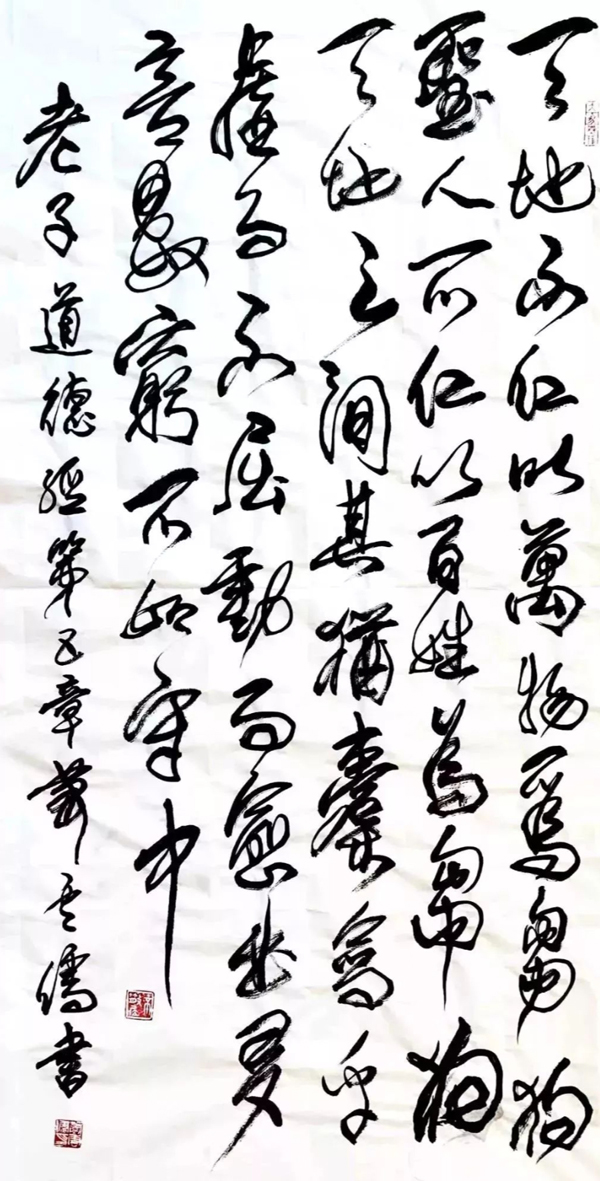 天地不仁以萬物爲芻狗
聖人不仁以百姓為芻狗
天地之間其猶橐龠乎
虛而不屈動而愈出多
言數窮不如守中
老子道德經第五章云儒書